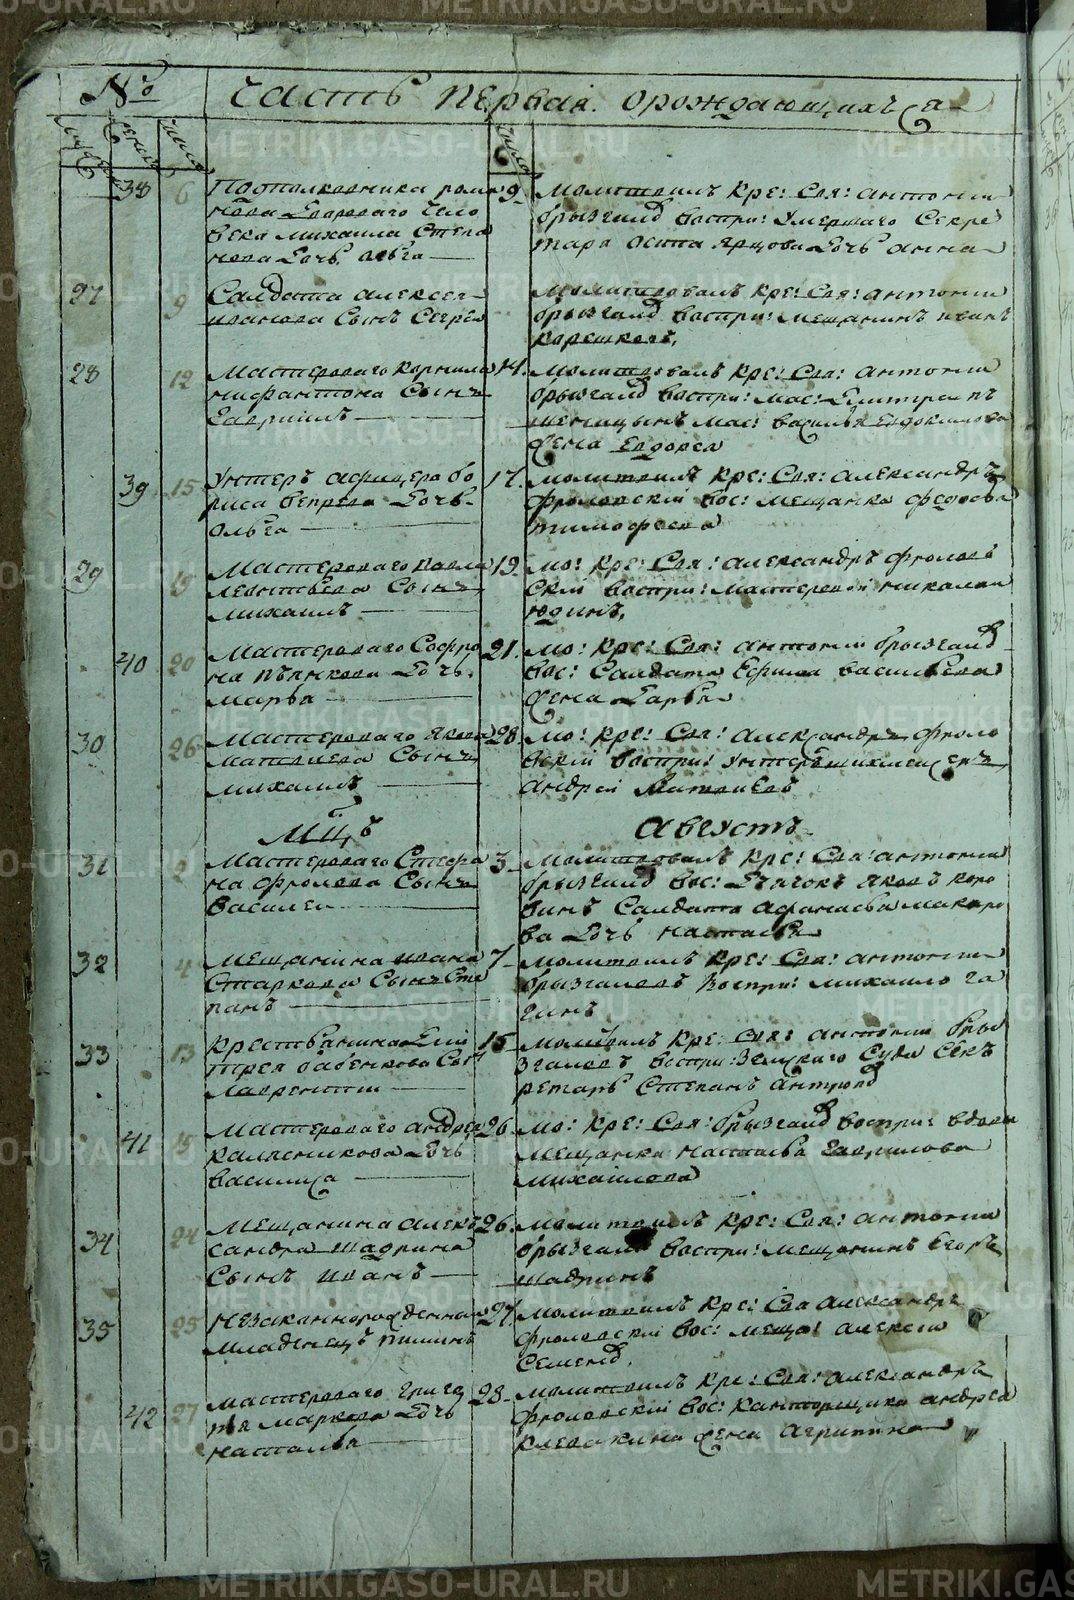 №
Часть Первая. о рождающихся
38 6 Подполковника рома 9
нова Двороваго Чело
века михаила Степа
нова Дочь Ольга
Молитвилъ Кре: Свя: антонии
брызгалов воспри: Умершаго Секре
таря осипа ярцова Дочь анна
27 9 Салдата алексея
иванова Сынъ Сергеи
Молитвовалъ Кре: Свя: антонии
брызгалов воспри: Мещанинъ иванъ
корешковъ,
28 12 Мастероваго корнила 14.
нифантова Сынъ
Гавриилъ
Молитвовалъ Кре: Свя: антонии
брызгалов воспри: мас: Димитреи п
шеницынъ мас: василья Евдокимова
жена Евдорея
39 15 Унтеръ афицера бо 17.
риса Дочь
Ольга
молитвилъ Кре: Свя: александръ
фроловскiй вос: мещанка федосья
тимофеева
29 15 Мастероваго павла 19.
леонтьева Сынъ
михаилъ
Мо: Кре: Свя: александръ фролов
скiй воспри: мастеровои николаи
юдинъ,
40 20 Мастероваго Софро 21.
на пьянкова Дочь
марья
Мо: Кре: Свя: антонiи брызгалов
вос: Салдата Ефима васильева
жена Дарья
30 26 Мастероваго якова 28
матвиева Сынъ
михаилъ
Мо: Кре: Свя: александръ фроло
вскiй воспри: унтершихмейстеръ
андреи Матвиевъ
Мцъ Августъ
31 2 Мастероваго Стефа 3
на фролова Сынъ
василеи
Молитвовалъ Кре: Свя: антонии
брызгалов вос: Дьячокъ яковъ коро
винъ Салдата афанасья макаро
ва Дочь настасья
32 4 Мещанина ивана 7
Старкова Сынъ Сте
панъ
Молитвилъ Кре: Свя: антонии
брызгаловъ воспри: михаило га
гинъ
33 13 Крестьянина Дми 15
трея бабенкова Сын
лаврентии
Молитвилъ Кре: Свя: антонии бры
згаловъ воспри: Земскаго Суда Сек
ретарь Степанъ антропов
41 15 Мастероваго андрея 26
калясникова Дочь
василиса
Мо: Кре: Свя: брызгалов воспри: вдова
мещанка настасья гаврилова
михаилова
34 24 Мещанина алекъ 26.
сандра шадрина
Сынъ иванъ
Молитвилъ Кре: Свя: антонии
брызгалов воспри: мещанинъ Егоръ
шадринъ
35 25 Незаканнорожденныи 27.
младенецъ пименъ
Молитвилъ Кре: Свя александръ
фроловскiй вос: меща: алексеи
Семенов.
42 27 мастероваго григо 28
рья маркова Дочь
наталья
Молитвилъ Кре: Свя: александръ
фроловскiй вос: канторщика андрея
клевакина жена агрипина